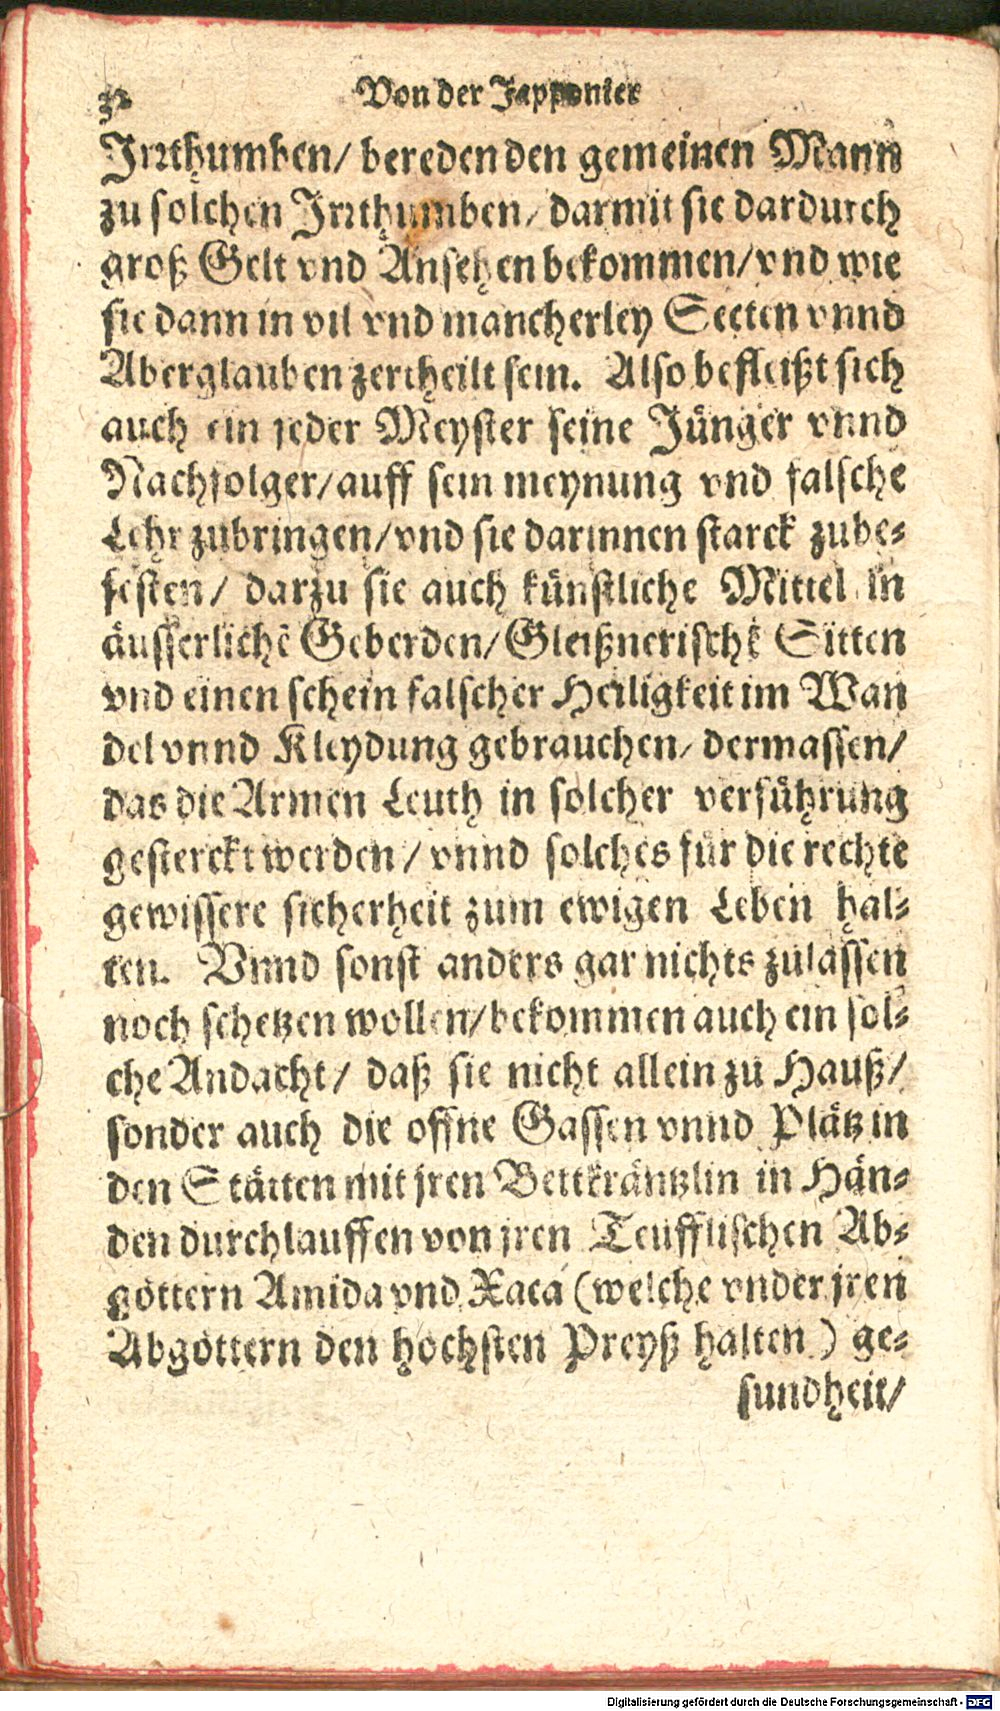 32 Von der Japponier
Irrthumben/ bereden den gemeinen Mann
zu solchen Irrthumben/ darmit sie dardurch
groß Gelt vnd Ansehen bekommen/ vnd wie
sie dann in vil vnd mancherley Secten vnnd
Aberglauben zertheilt sein. Also befleißt sich
auch ein jeder Meyster seine Jünger vnnd
Nachfolger/ auff sein meynung vnd falsche
Lehr zubringen/ vnd sie darinnen starck zube-
festen/ darzu sie auch künstliche Mittel in
äusserlichē Geberden/ Gleißnerischē Sitten
vnd einen schein falscher Heiligkeit im Wan
del vnnd Kleydung gebrauchen/ dermassen/
das die Armen Leuth in solcher verführung
gesterckt werden/ vnnd solches für die rechte
gewissere sicherheit zum ewigen Leben hal-
ten. Vnnd sonst anders gar nichts zulassen
noch schetzen wollen/ bekommen auch ein sol-
che Andacht/ daß sie nicht allein zu Hauß/
sonder auch die offne Gassen vnnd Plätz in
den Stätten mit jren Bettkräntzlin in Hän-
den durchlauffen von jren Teufflischen Ab-
göttern Amida vnd Xaca (welche vnder jren
Abgöttern den höchsten Preyß halten) ge-
sundheit/
Digitalisierung gefördert durch die Deutsche Forschungsgemeinschaft - DFG